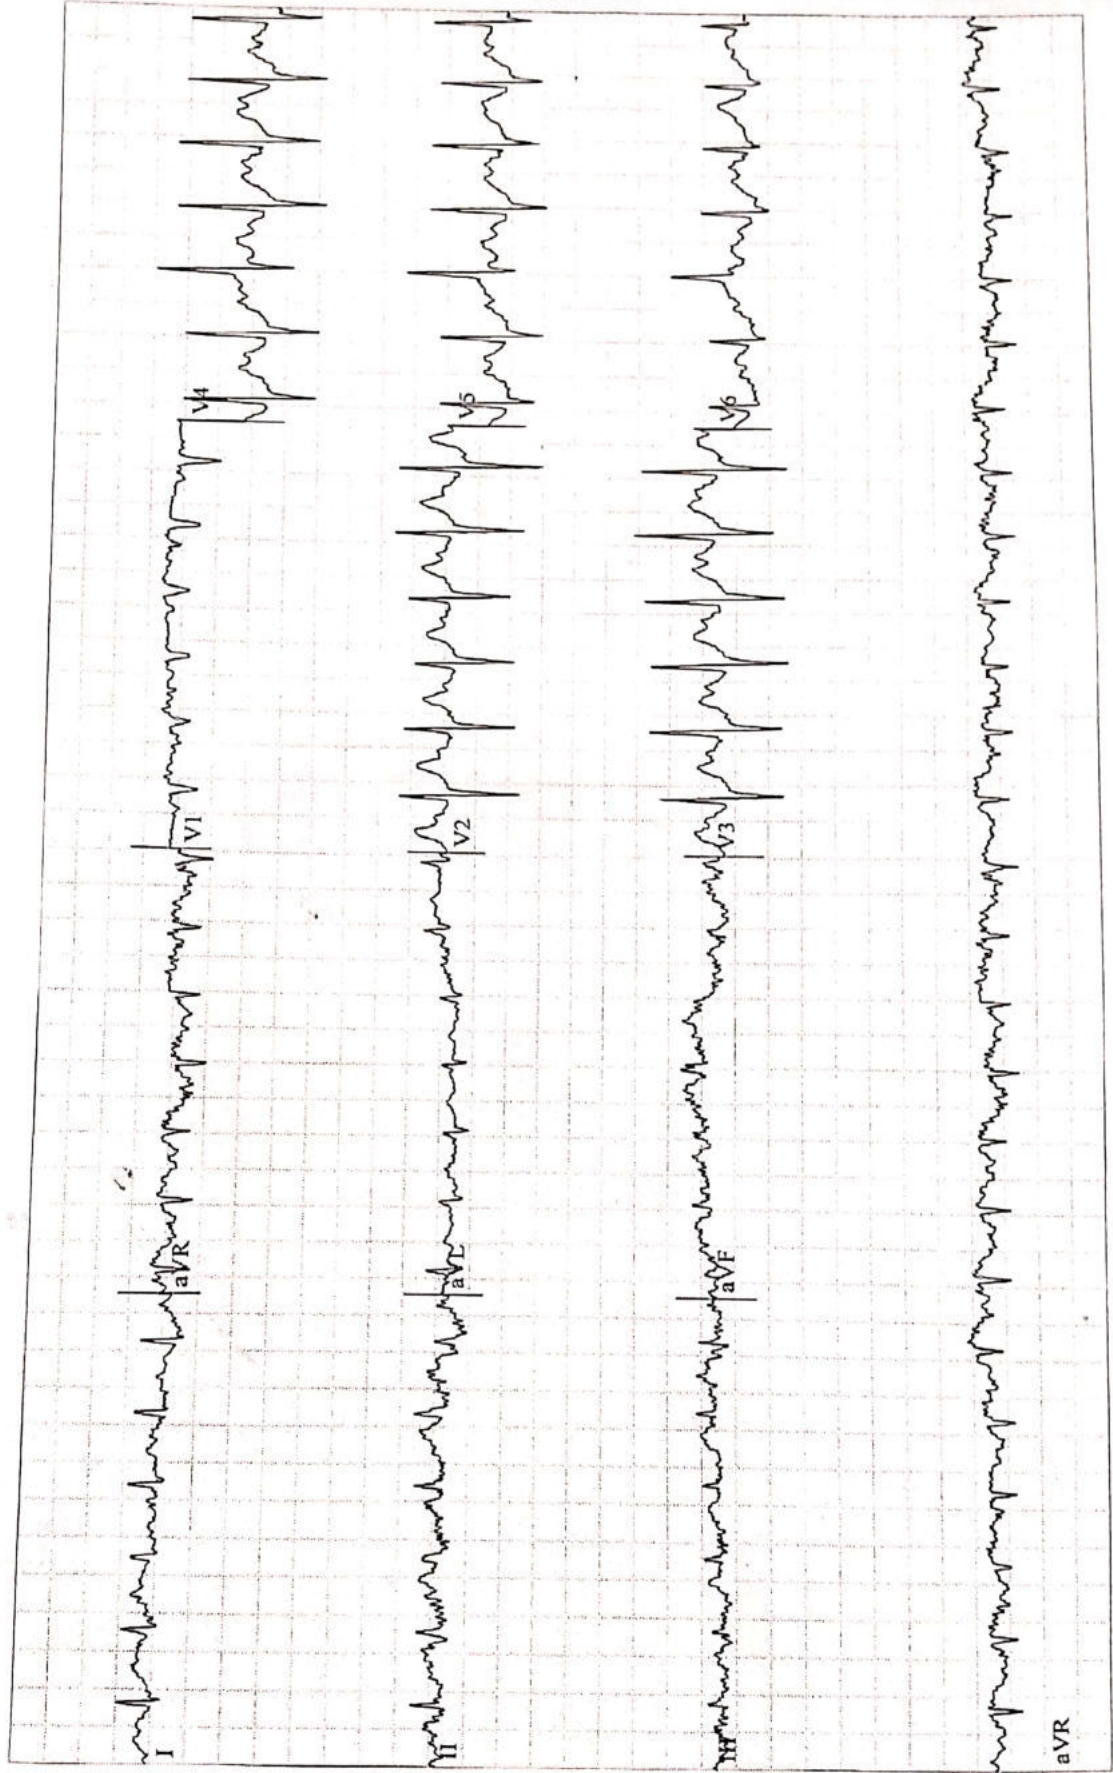 I aVR V1 V4
II aVL V2 V5
III aVF V3 V6
aVR